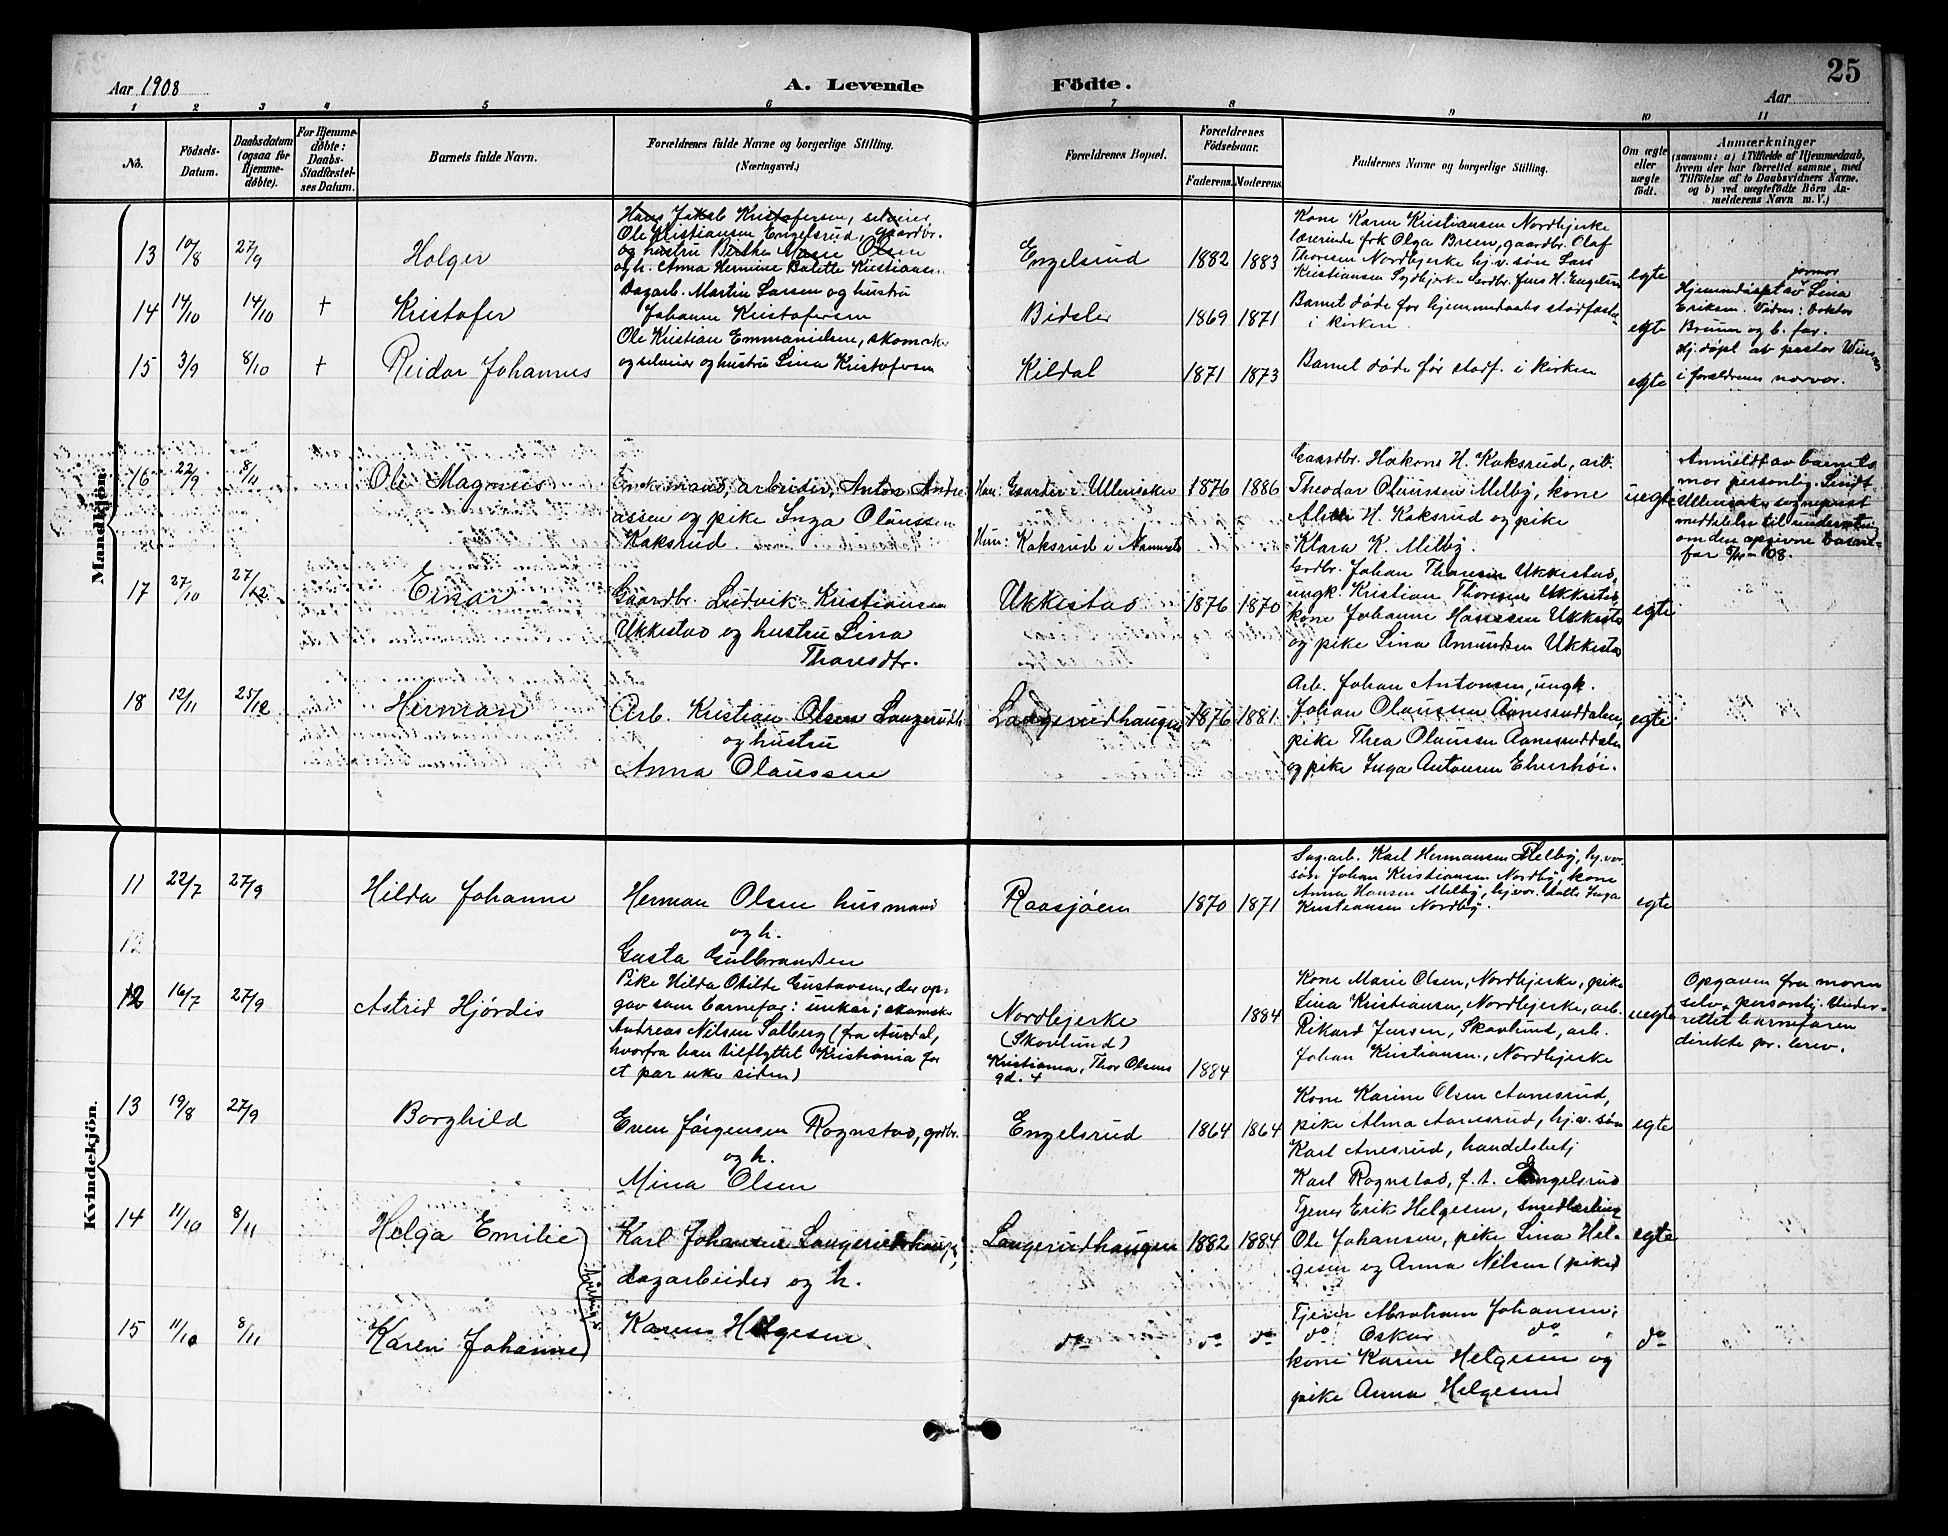 Aar 1908
A. Levende
Födte.
25
Aar
1 2 3 4 5 6 7 8 9 10 11
No.
Födsels-
Datum.
Daabsdatum
(ogsaa for
Hjemme-
døbte).
For Hjemme-
døbte:
Daabs-
Stadfæstel-
ses Datum.
Barnets fulde Navn.
Forældrenes fulde Navne og borgerlige Stilling.
(Næringsvei.)
Forældrenes Bopæl.
Forældrenes
Födselsaar.
Faderens.
Moderens.
Faddernes Navne og borgerlige Stilling.
Om ægte
eller
uægte
født.
Anmærkninger
(saasom: a) i Tilfælde af Hjemmedaab,
hvem der har forrettet samme, med
Tilføielse af to Daabsvidners Navne,
og b) ved uægtefødte Börn An-
melderens Navn m. V.)
Mandkjön.
13 10/8 27/9
Holger
Hans Jakob Kristofersen, selveier,
Ole Kristiansen Engelsrud, gaardbr.
og hustru Berthe Marie Olsen
og h. Anna Hermine Bolette Kristiansen
Engelsrud
1882 1883
Kone Karen Kristiansen Nordbjerke
lærerinde frk Olga Breen, gaardbr. Olaf
Thoresen Nordbjerke hj.v. søn Lars
Kristiansen Sydbjerke Grdbr. Jens H. Engelsrud
egte
14 14/10 14/10 +
Kristofer
Dagarb. Martin Larsen og hustru
Johanne Kristofersen
Bidsler
1869 1871
Barnet døde før hjemmedaabs stadfæstes
i kirken.
egte
farmor
Hjemmedøpt av Lina
Eriksen. Vidner: Doktor
Bruun og b. far.
15 3/9 8/10 +
Reidar Johannes
Ole Kristian Emmanuelsen, skomaker
og selveier og hustru Lina Kristofersen
Kildal
1871 1873
Barnet døde før stadf. i kirken
egte
Hj.døpt av pastor
i forældrenes nærvær.
16 22/9 8/11
Ole Magnus
Enkemand, arbeider, Anton Andre
assen og pike Inga Olaussen
Kaksrud.
Han: Gaarder i Ullensaker
Hun: Kaksrud i Nannestad
1876 1886
Gaardbr. Hakon H. Kaksrud, arb.
Theodor Olaussen Melby, kone
Alette H. Kaksrud og pike
Klara K. Melby.
uegte
Anmeldt av barnets
mor personlig. Sendt
Ullensaker sogneprest
meddelelse til underretning
om den opgivne barne-
far 5/11-08.
17 27/10 27/12
Einar
Gaardbr. Ludvik Kristiansen
Ukkestad og hustru Lina
Thoresdtr.
Ukkestad
1876 1870
Grdbr. Johan Thoresen Ukkestad,
ungk. Kristian Thoresen Ukkestad
kone Johanne Hansen Ukkestad
og pike Lina Amundsen Ukkestad
egte
18 12/11 25/12
Herman
Arb. Kristian Olsen Langerudh.
og hustru
Anna Olaussen
Langerudhaugen
1876 1881
Arb. Johan Antonsen, ungk.
Johan Olaussen Aanesruddalen,
pike Thea Olaussen Aanesruddalen
og pike Inga Antonsen
egte
Kvindekjön.
11 22/7 27/9
Hilda Johanne
Herman Olsen husmand
og h.
Gusta Gulbrandsen
Raasjøen
1870 1871
Sag.arb. Karl Hermansen Melby, hj.vær.
søn Johan Kristiansen Nordby, kone
Anna Hansen Melby, hj.vær. datte Inga
Kristiansen Nordby.
egte
12
12 16/7 27/9
Astrid Hjørdis
Pike Hilda Otilde Gustavsen, der op-
gav som barnefar: unkar; skomak
Andreas Nilsen Solberg (fra Aurdal,
hvorfra han tilflyttet Kristiania for
et par uker siden)
Nordbjerke
(Skovlund)
Kristiania, Thor Olsens
gd. 4
1884
1884
Kone Marie Olsen, Nordbjerke, pike
Lina Kristiansen, Nordbjerke, arb.
Rikard Jensen, Skovlund, arb.
Johan Kristiansen, Nordbjerke
uegte
Opgaven fra moren
selv. personlig. Under-
rettet barnefaren
direkte pr. brev.
13 19/8 27/9
Borghild
Even Jørgensen Rognstad, grdbr.
og h.
Mina Olsen
Engelsrud
1864 1864
Kone Karine Olsen Aanesrud,
pike Alma Aanesrud, hj.v. søn
Karl Anesrud, handelsbetj
Karl Rognstad, f. t. Engelsrud
egte
14 11/10 8/11
Helga Emilie
Karl Johansen Langerudshaugen,
dagarbeider og h.
Langerudhaugen
1882 1884
Tjener Erik Helgesen, smedlærling
Ole Johansen, pike Lina Hel-
gesen og Anna Nilsen (pike)
egte
tvillinger
15 11/10 8/11
Karen Johanne
Karen Helgesen
do do do
Tjener Abraham Johansen,
do Oskar do
kone Karen Helgesen og
pike Anna Helgesen
do